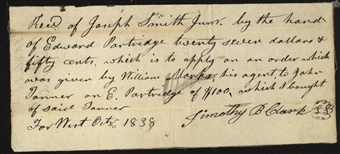 Recd. of Joseph Smith Junr. by the hand
of Edward Partridge twenty seven dollars &
fifty cents, which is to apply on an order which
was given by William Marks, his agent, to John
Tanner on E. Partridge of $100, which I bought
of said Tanner
Far West Oct 1838 Timothy B Clark